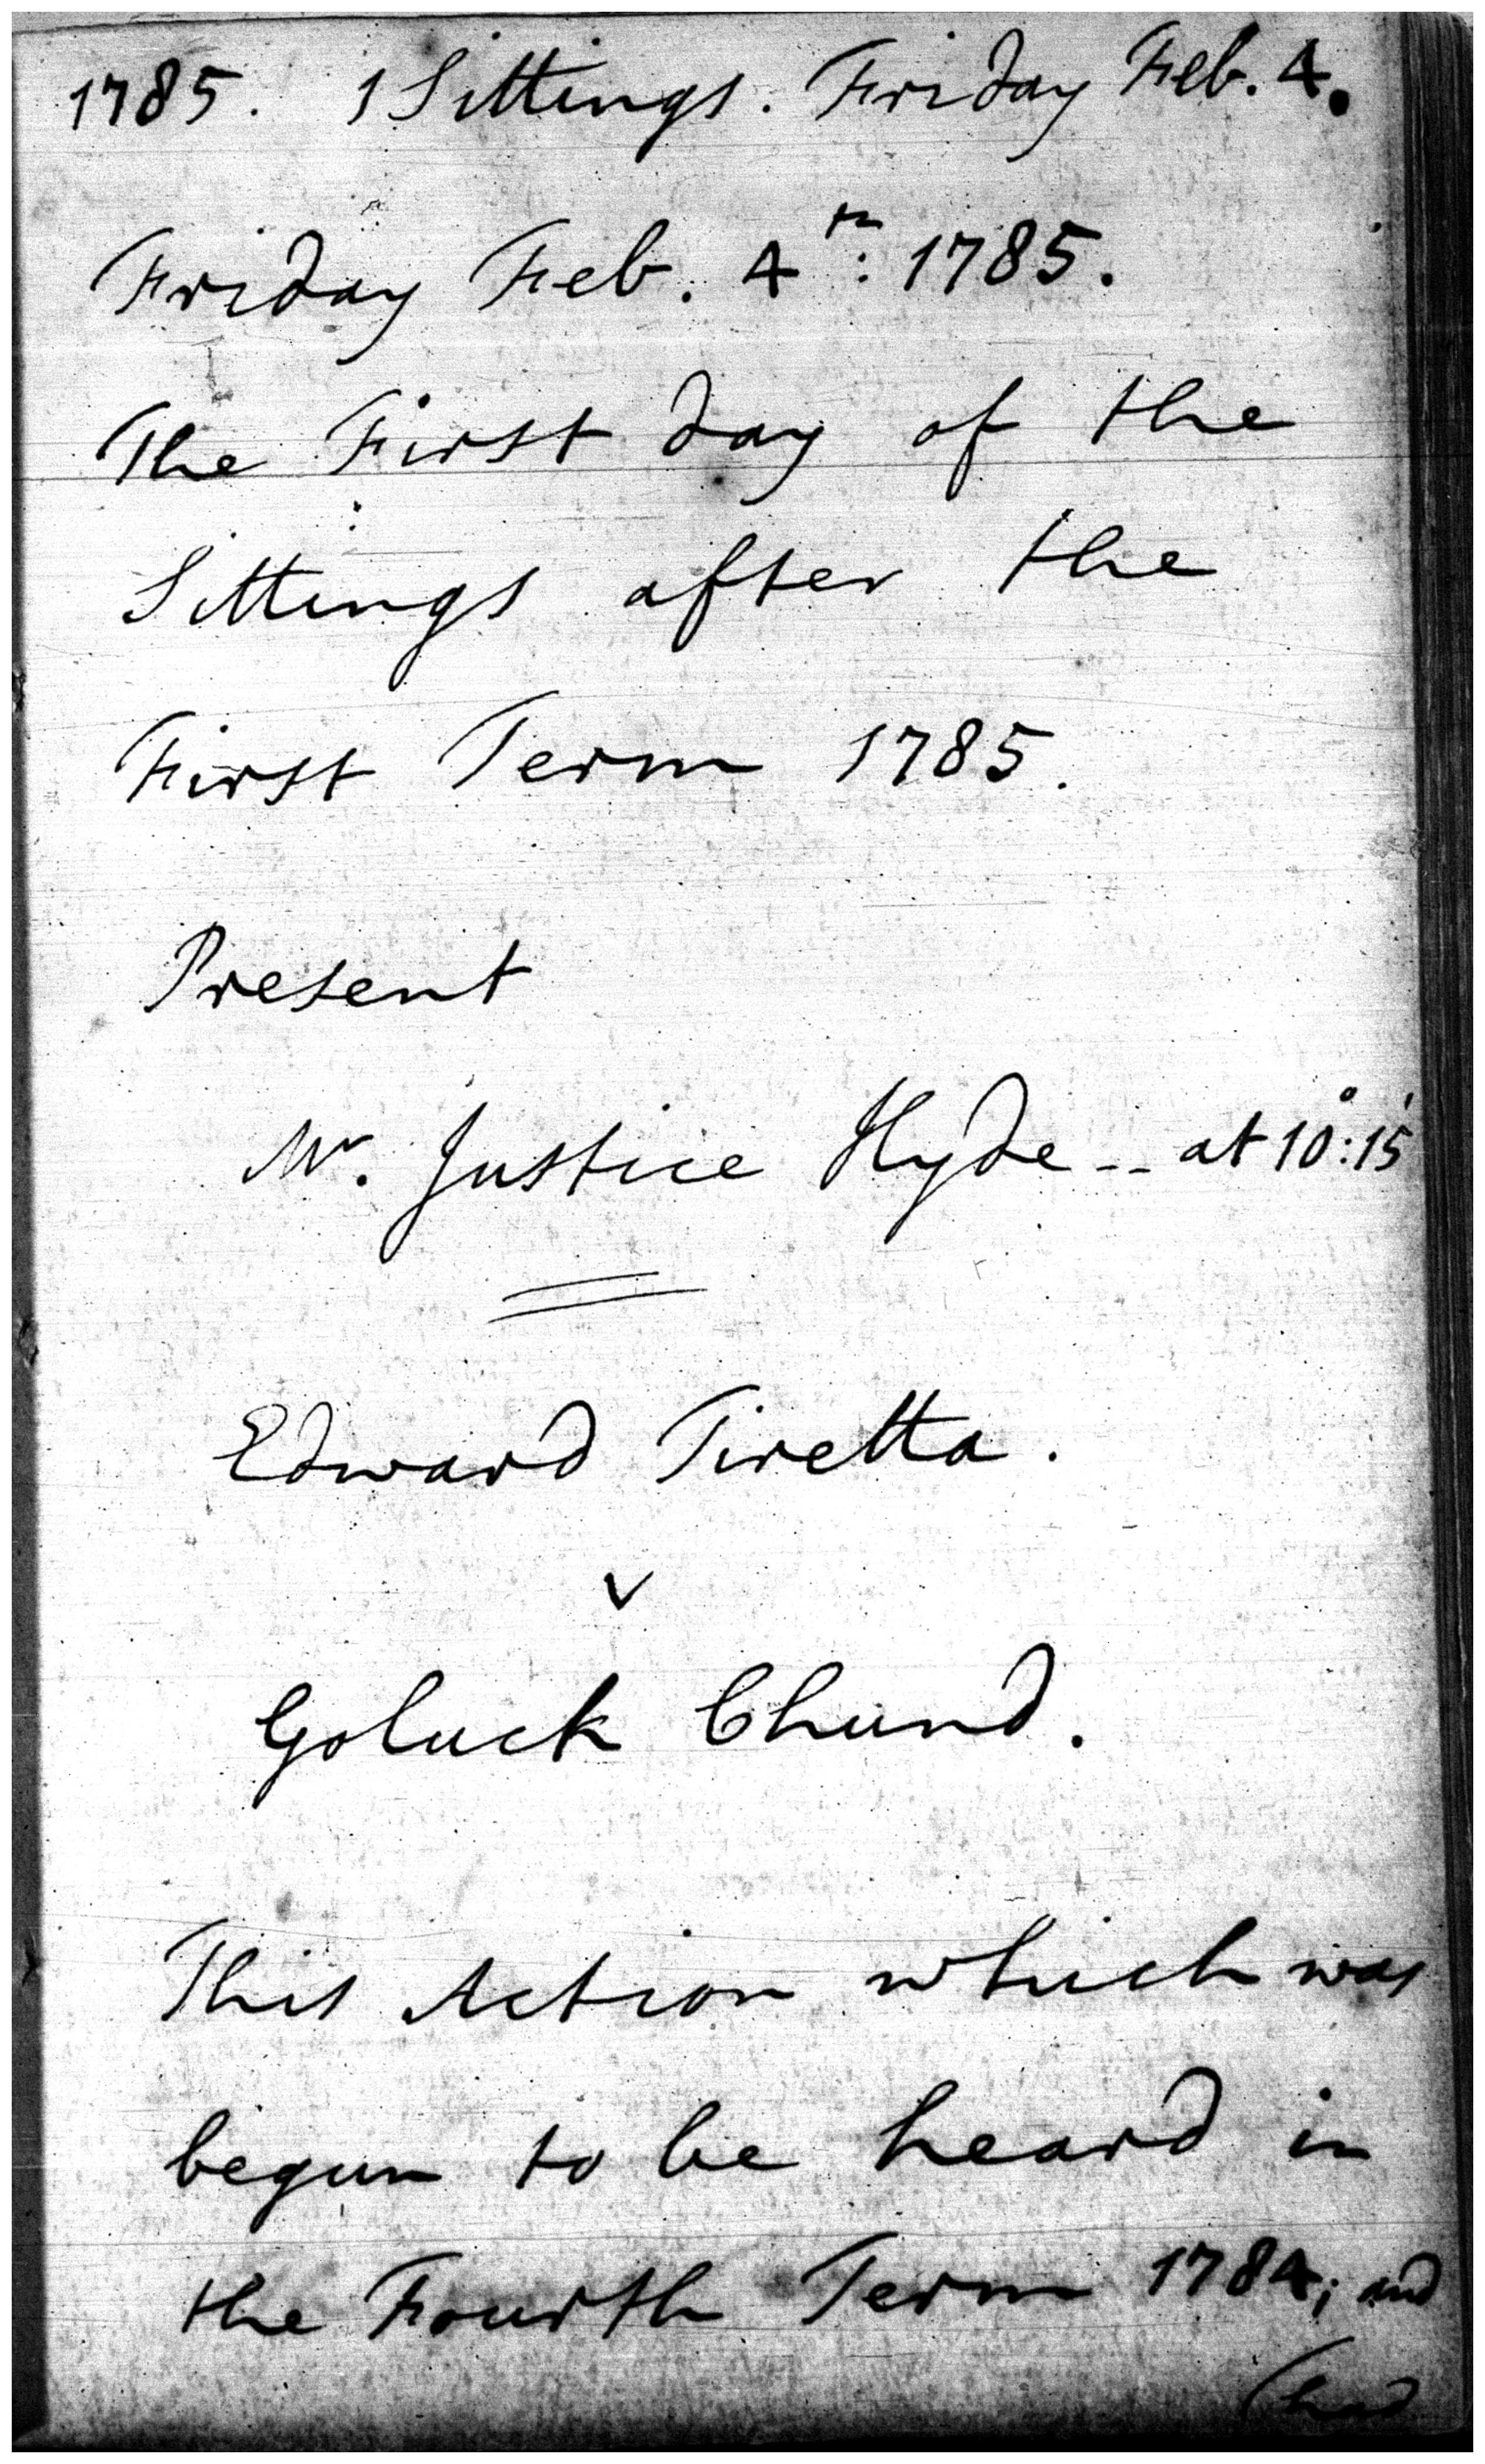 1785. 1 Sittings. Friday Feb. 4.
Friday Feb. 4th: 1785.
The First day of the
Sittings after the
First Term 1785.
Present
Mr. Justice Hyde -- at 10°:15'
Edward Tiretta.
v
Goluck Chund.
This Action which was
begun to be heard in
the Fourth Term 1784; and
(had